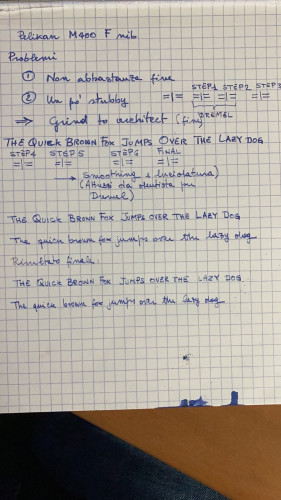 Pelikan M400 F nib
Problemi
① Non abbastanza fine
② Un po' stubby =|= =|= =|= =|=
STEP1 STEP2 STEP3
DREMEL
⇒ Grind to architect (fine)
THE QUICK BROWN FOX JUMPS OVER THE LAZY DOG
STEP4 STEP5 STEP6 FINAL
=|= =|= =|= =|=
→ Smoothing e lucidatura)
(Attrezzi da dentista per
Dremel)
THE QUICK BROWN FOX JUMPS OVER THE LAZY DOG
The quick brown fox jumps over the lazy dog
Risultato finale.
THE QUICK BROWN FOX JUMPS OVER THE LAZY DOG.
The quick brown fox jumps over the lazy dog